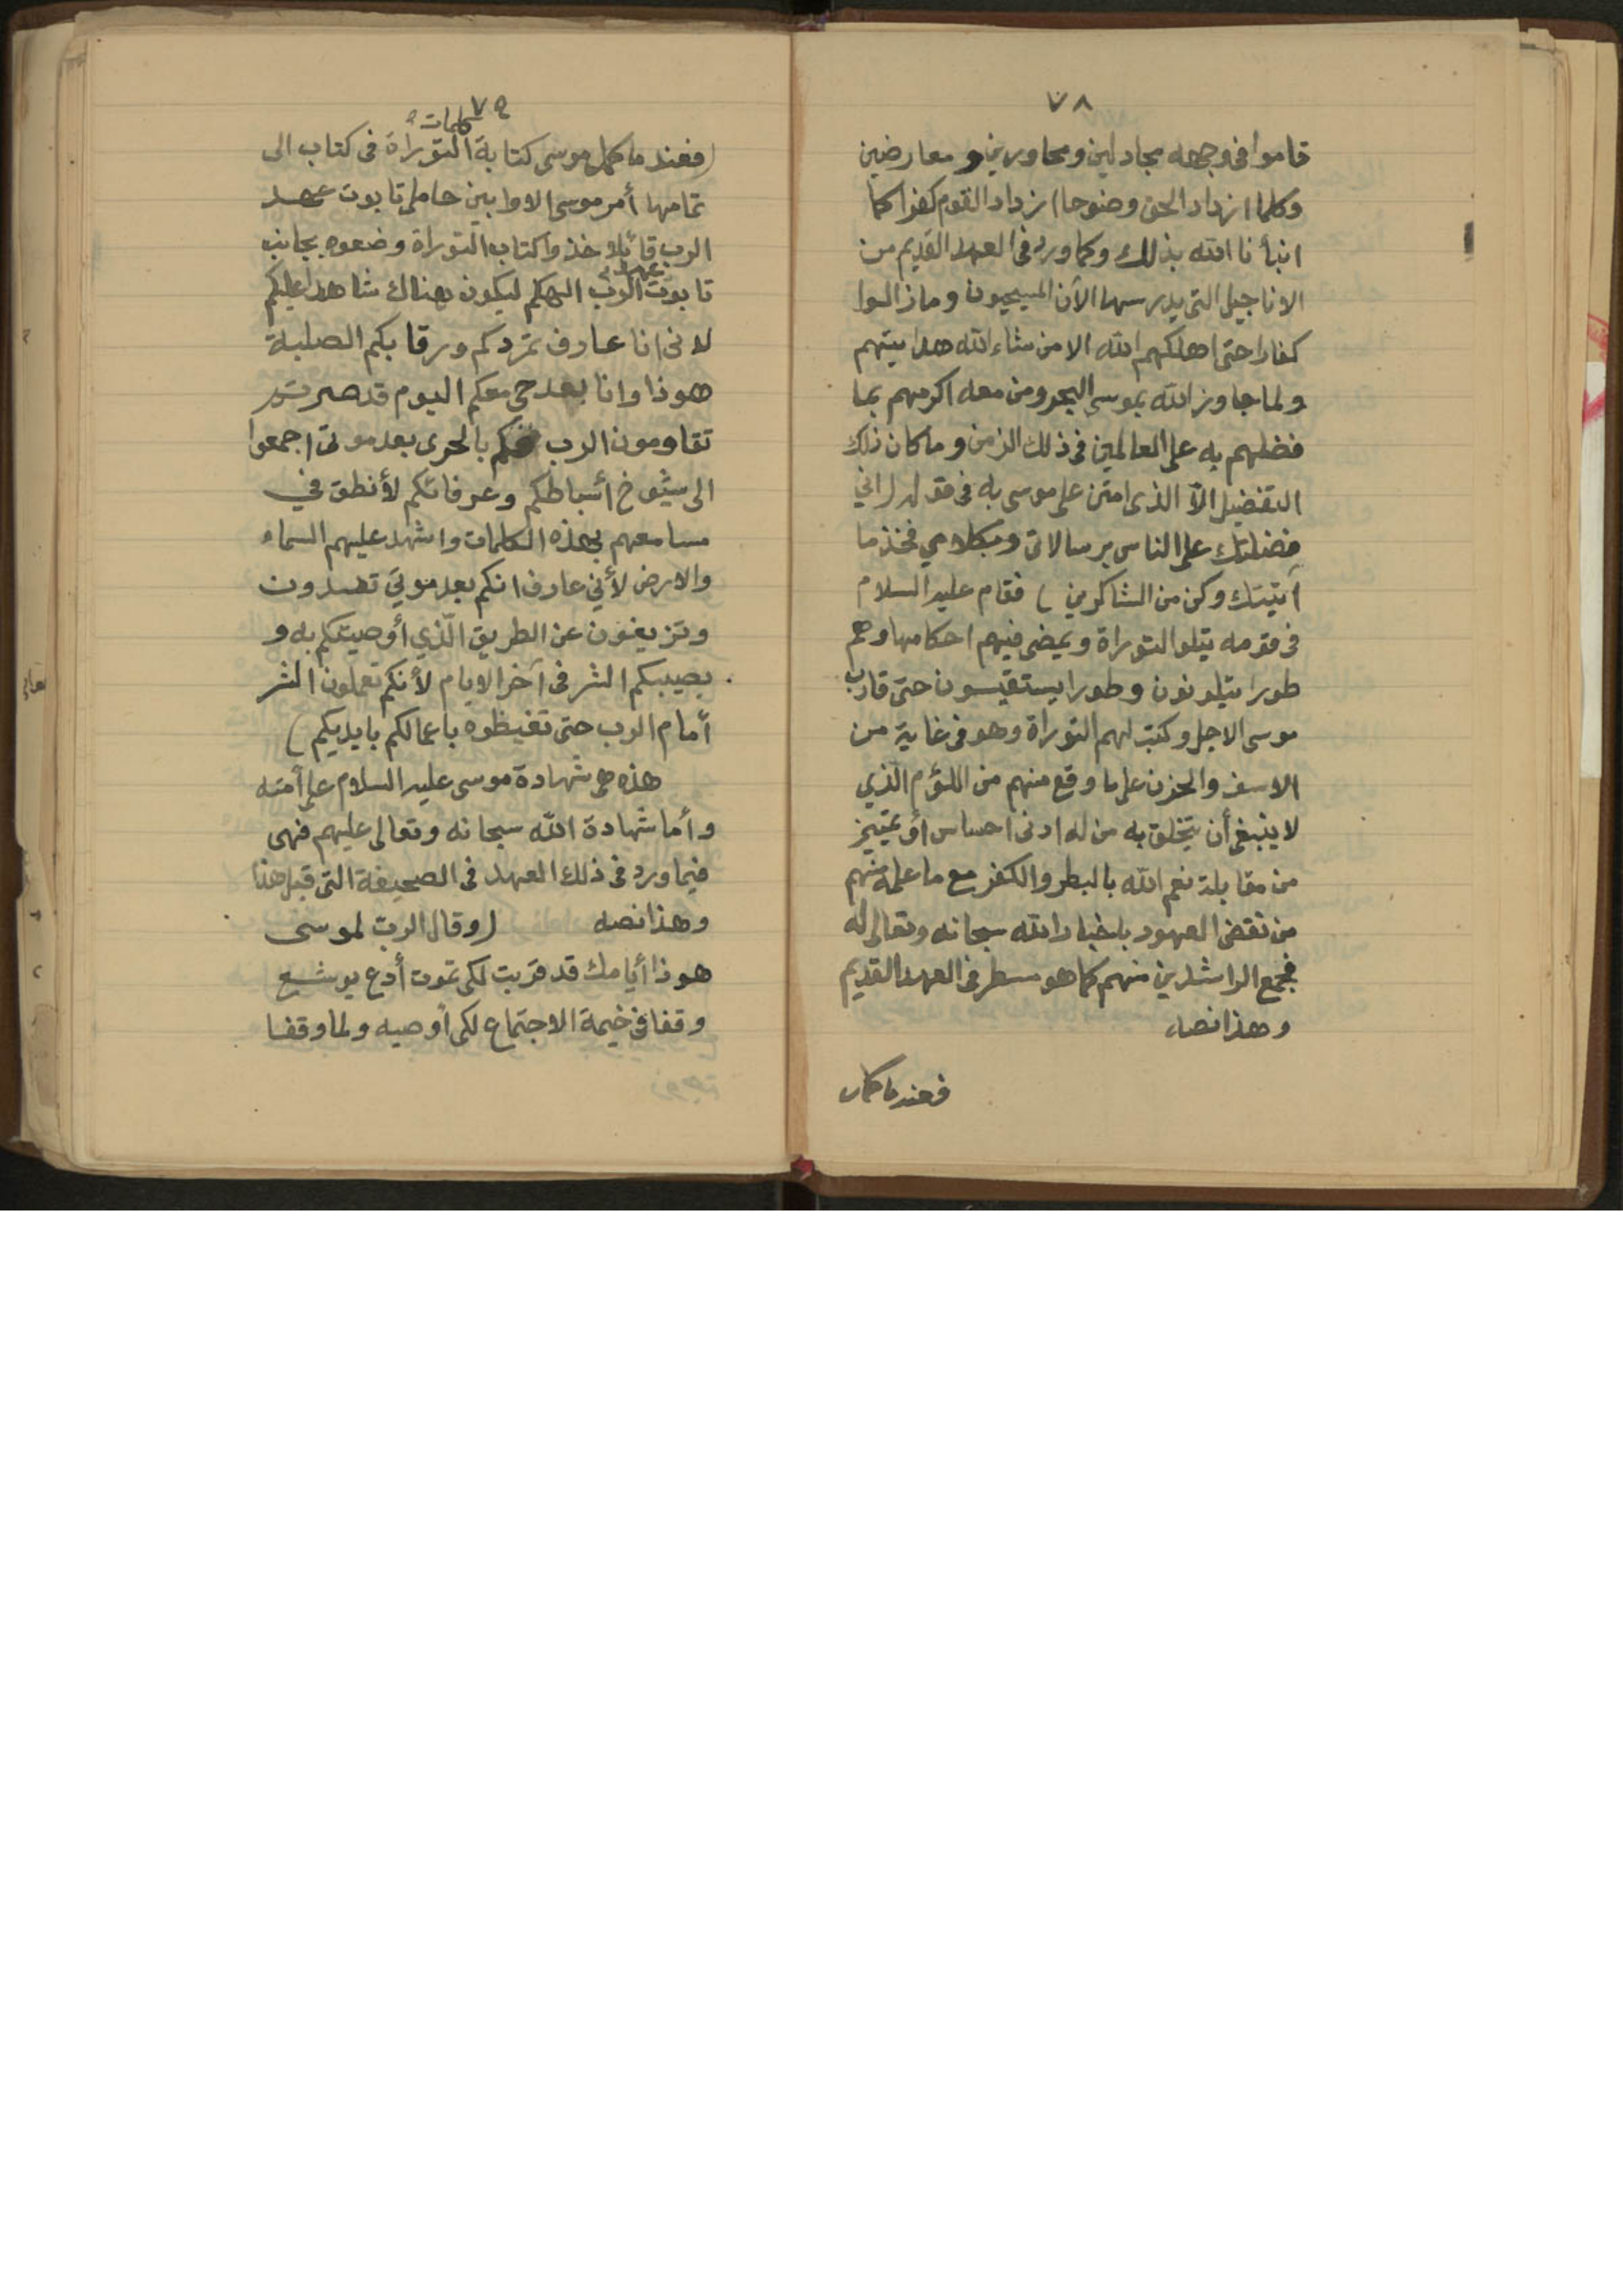 ٧٨
قاموا فى وجهه مجادلين ومحاورين و معارضين
وكلما ازداد الحق وضوحا ازداد القوم كفرا كما
انبأنا الله بذلك وكما ورد فى العهد القديم من
الاناجيل التى يدرسها الآن المسيحيون وما زالوا
كفارا حتى اهلكهم الله الا من شاء الله هدايتهم
ولما جاوز الله بموسى البحر ومن معه اكرمهم بما
فضلهم به على العالمين فى ذلك الزمن وما كان ذلك
التفضيل الا الذى امتن على موسى به فى قوله (انى
فضلتك على الناس برسالاتى وبكلامي فخذ ما
آتيتك وكن من الشاكرين) فقام عليه السلام
فى قومه يتلو التوراة ويمضى فيهم احكامها وهم
طورا يتلونون وطورا يستقيسون حتى قارب
موسى الاجل وكتب لهم التوراة وهو فى غاية من
الاسف والحزن على ما وقع منهم من اللؤم الذي
لا ينبغى أن يتخلق به من له ادنى احساس أو تمييز
من مقابلة نعم الله بالبطر والكفر مع ما علمه منهم
من نقض العهود باخبار الله سبحانه وتعالى له
فجمع الراشدين منهم كما هو مسطر فى العهد القديم
وهذا نصه
فعند ما كمل
٧٩
(فعند ما كمل موسى كتابة كلمات التوراة فى كتاب الى
تمامها أمر موسى الاوابين حاملى تابوت عهد
الرب قائلا خذوا كتاب التوراة وضعوه بجانب
تابوت عهد الرب الهكم ليكون هناك شاهدا عليكم
لانى انا عارف تمردكم ورقابكم الصلبة
هوذا وانا بعد حي معكم اليوم قد صرتم
تقاومون الرب فكم بالحرى بعد موتى اجمعوا
الى شيوخ أسباطكم وعرفائكم لأنطق في
مسامعهم بهذه الكلمات واشهد عليهم السماء
والارض لأني عارف انكم بعد موتي تفسدون
وتزيغون عن الطريق الّذي أوصيتكم به و
يصيبكم الشر فى آخر الايام لأنكم تعملون الشر
أمام الرب حتى تغيظوه باعمالكم بايديكم)
هذه هى شهادة موسى عليه السلام على أمته
وأما شهادة الله سبحانه وتعالى عليهم فهى
فيما ورد فى ذلك العهد فى الصحيفة التى قبل هذا
وهذا نصه (وقال الرب لموسى
هوذا أيامك قد قربت لكى تموت أدع يوشع
وقفا فى خيمة الاجتماع لكى أوصيه ولما وقفا